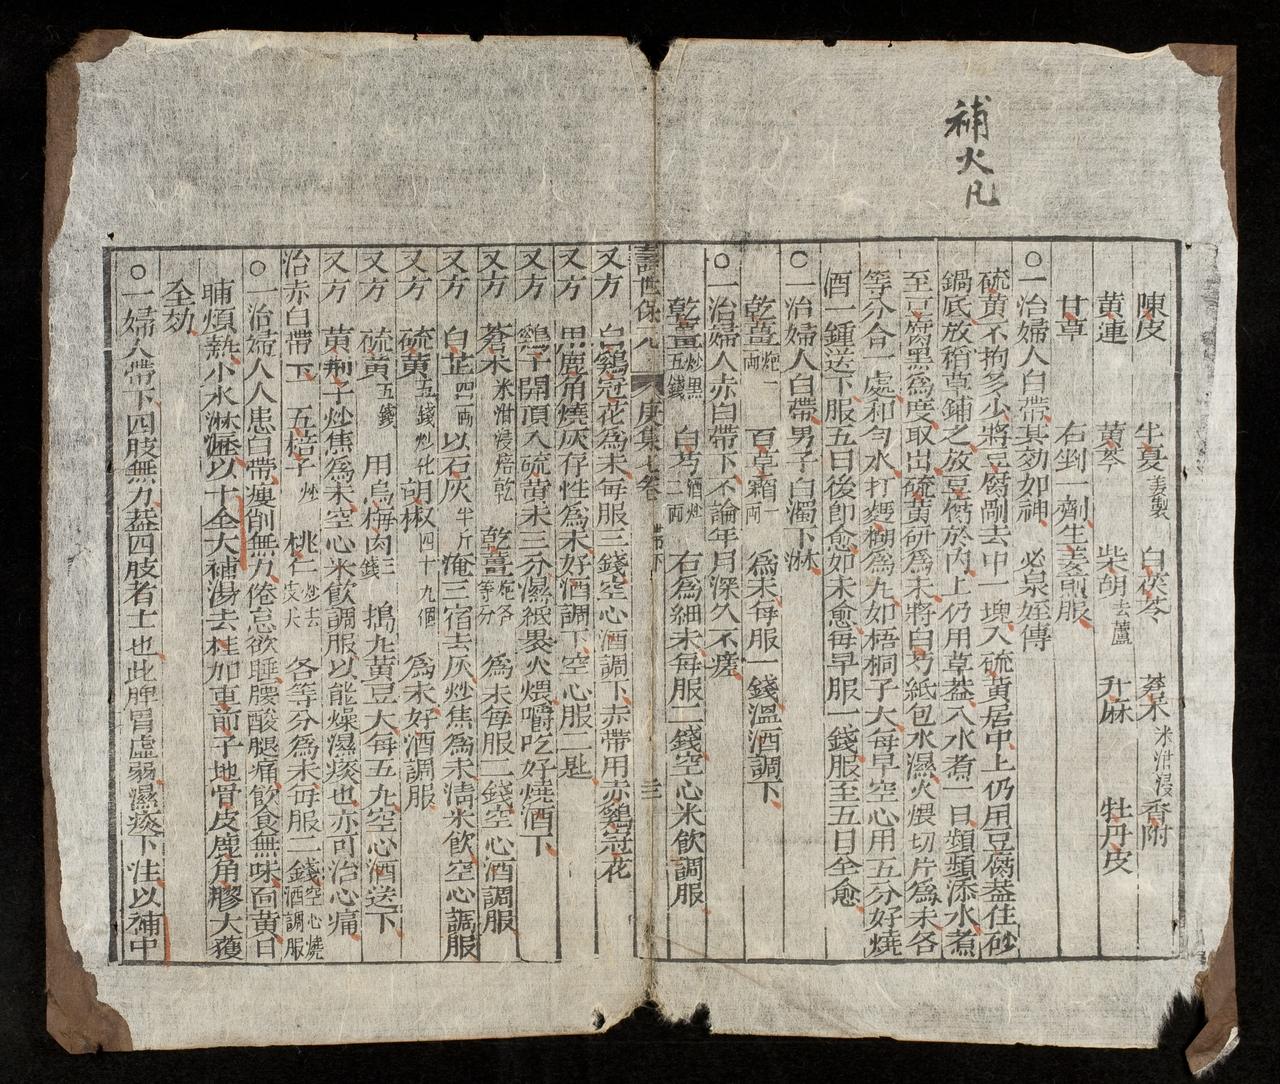 補火凡
陳皮 半夏姜製 白茯苓 蒼朮米泔浸 香附
黄連 黄芩 柴胡去蘆 升麻 牡丹皮
甘草 右剉一劑生姜煎服
○一治婦人白帶其効如神 必泉姪傳
硫黄不拘多少將豆腐剛去中一塊入硫黄居中上仍用豆腐葢住砂
鍋底放稍草鋪之放豆腐於内上仍用草葢入水煮一日頻頻添水煮
至豆腐黑為度取出硫黄研為末將白芍紙包水濕火煨切片為末各
等分合一處和勻水打麪糊為九如梧桐子大每早空心用五分好燒
酒一鍾送下服五日後即愈如未愈每早服一錢服至五日全愈
○一治婦人白帶男子白濁下淋
乾薑炮一両 百草霜一両 為末每服一錢溫酒調下
○一治婦人赤白帶下不論年月深久不瘥
乾薑炒黑五錢 白芍酒炒二両 右為細末每服二錢空心米飲調服
壽世保元 庚集七卷 帶下 三
又方 白鷄冠花為末每服三錢空心酒調下赤帶用赤鷄冠花
又方 黑鹿角燒灰存性為末好酒調下空心服二匙
又方 鷄子開頂入硫黄末三分濕紙褁火煨嚼吃好燒酒下
又方 蒼朮米泔浸焙乾 乾薑炮各等分 為末每服二錢空心酒調服
又方 白芷四両 以石灰半斤 淹三宿去灰炒焦為末清米飲空心調服
又方 硫黄五錢炒化 胡椒四十九個 為末好酒調服
又方 硫黄五錢 用烏梅肉三錢 搗九黄豆大每五九空心酒送下
又方 黄荊子炒焦為末空心米飲調服以能燥濕痰也亦可治心痛
治赤白帶下 五棓子炒 桃仁炒去皮尖 各等分為末每服一錢空心燒酒調服
○一治婦人人患白帶瘦削無力倦怠欲睡腰酸腿痛飲食無味面黄日
晡煩熱小水淋瀝以十全大補湯去桂加車前子地骨皮鹿角膠大獲
全効
○一婦人帶下四肢無力葢四肢者土也此脾胃虛弱濕痰下注以補中